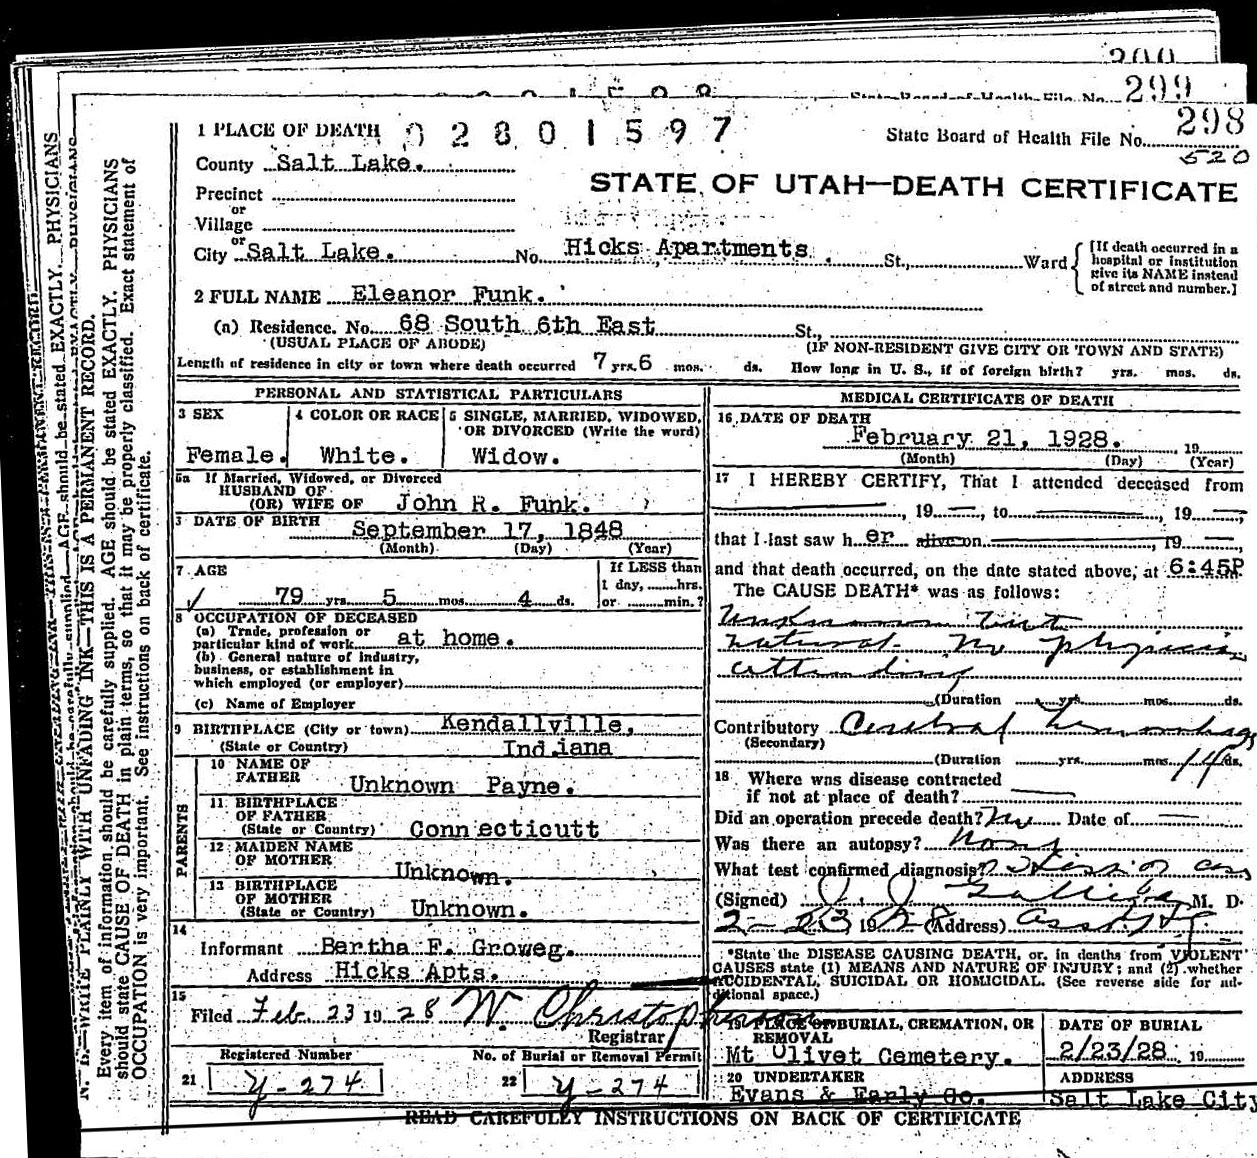 200
299
298
520
1 PLACE OF DEATH 02801597 State Board of Health File No.
County Salt Lake.
STATE OF UTAH—DEATH CERTIFICATE
Precinct
or
Village
or
City Salt Lake. No. Hicks Apartments St., Ward
[If death occurred in a
hospital or institution
give its NAME instead
of street and number.]
2 FULL NAME Eleanor Funk.
(a) Residence. No. 68 South 6th East St.,
(USUAL PLACE OF ABODE) (IF NON-RESIDENT GIVE CITY OR TOWN AND STATE)
Length of residence in city or town where death occurred 7 yrs. 6 mos. ds. How long in U. S., if of foreign birth? yrs. mos. ds.
PERSONAL AND STATISTICAL PARTICULARS
3 SEX
Female.
4 COLOR OR RACE
White.
5 SINGLE, MARRIED, WIDOWED,
OR DIVORCED (Write the word)
Widow.
5a If Married, Widowed, or Divorced
HUSBAND OF
(OR) WIFE OF John R. Funk.
DATE OF BIRTH September 17, 1848
(Month) (Day) (Year)
7 AGE
79 yrs. 5 mos. 4 ds.
If LESS than
1 day, hrs.
or min.?
8 OCCUPATION OF DECEASED
(a) Trade, profession or
particular kind of work at home.
(b) General nature of industry,
business, or establishment in
which employed (or employer)
(c) Name of Employer
9 BIRTHPLACE (City or town) Kendallville,
(State or Country) Indiana
PARENTS
10 NAME OF
FATHER Unknown Payne.
11 BIRTHPLACE
OF FATHER
(State or Country) Connecticutt
12 MAIDEN NAME
OF MOTHER Unknown.
13 BIRTHPLACE
OF MOTHER
(State or Country) Unknown.
14
Informant Bertha F. Groweg.
Address Hicks Apts.
15
Filed Feb. 23 1928 W. Christopherson
Registrar
Registered Number No. of Burial or Removal Permit
21 Y-274 22 Y-274
MEDICAL CERTIFICATE OF DEATH
16 DATE OF DEATH
February 21, 1928. 19
(Month) (Day) (Year)
17 I HEREBY CERTIFY, That I attended deceased from
, 19 , to , 19
that I last saw h er alive on , 19
and that death occurred, on the date stated above, at 6:45P
The CAUSE DEATH* was as follows:
Unknown but
natural. No physician
attending
(Duration yrs. mos. ds.
Contributory Cerebral hemorrhage
(Secondary)
(Duration yrs. mos. 14 ds.
18 Where was disease contracted
if not at place of death?
Did an operation precede death? No Date of
Was there an autopsy? None
What test confirmed diagnosis?
(Signed) J. J. M. D.
2-23 1928 (Address)
*State the DISEASE CAUSING DEATH, or. in deaths from VIOLENT
CAUSES state (1) MEANS AND NATURE OF INJURY; and (2) whether
ACCIDENTAL, SUICIDAL OR HOMICIDAL. (See reverse side for additional space.)
19 PLACE OF BURIAL, CREMATION, OR
REMOVAL
Mt Olivet Cemetery.
DATE OF BURIAL
2/23/28 19
20 UNDERTAKER
Evans & Early Co.
ADDRESS
Salt Lake City
READ CAREFULLY INSTRUCTIONS ON BACK OF CERTIFICATE
N. B.—WRITE PLAINLY WITH UNFADING INK—THIS IS A PERMANENT RECORD.
Every item of information should be carefully supplied. AGE should be stated EXACTLY. PHYSICIANS
should state CAUSE OF DEATH in plain terms, so that it may be properly classified. Exact statement of
OCCUPATION is very important. See instructions on back of certificate.